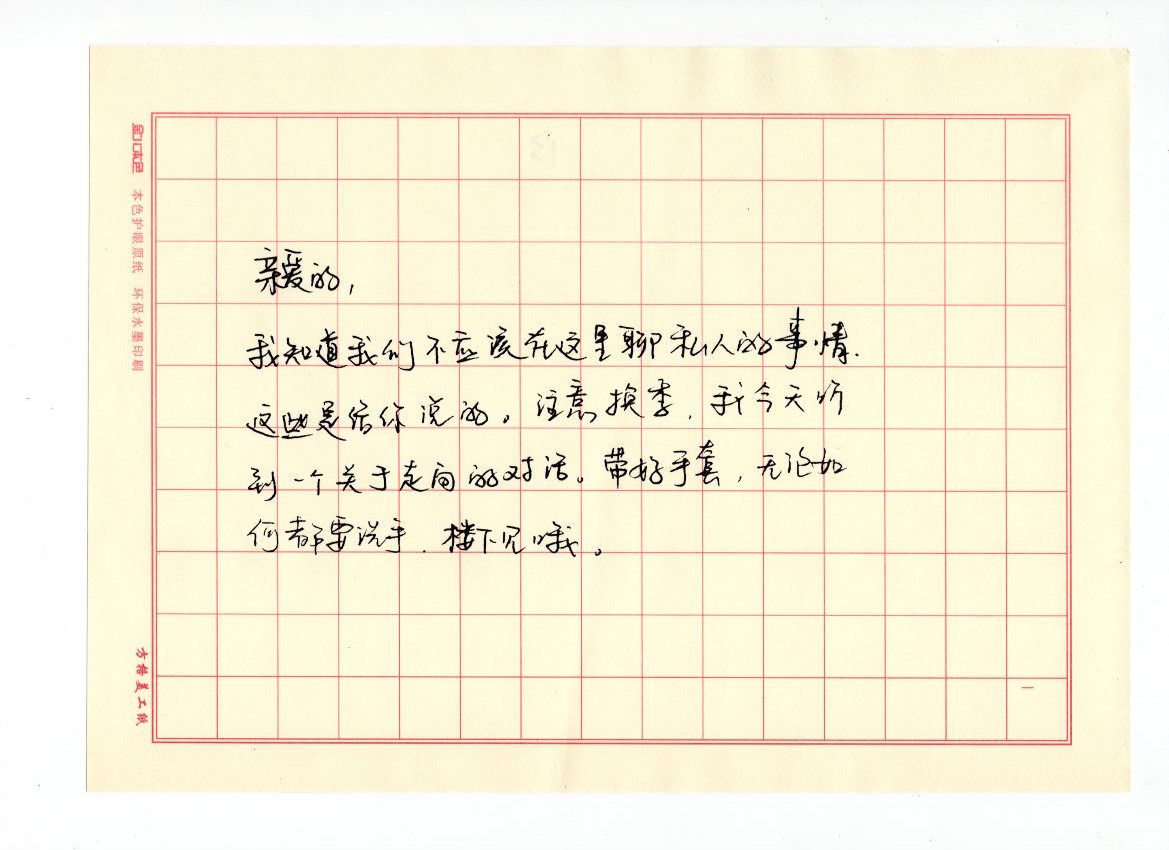 亲爱的,
我知道我们不应该在这里聊私人的事情.
这些是给你说的。注意换季,我今天听
到一个关于走向的对话。带好手套,无论如
何都要洗手.楼下见哦。
本色护眼原纸 环保水墨印刷
方格美工纸
一